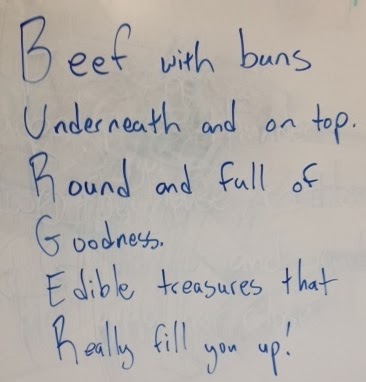 Beef with buns
Underneath and on top.
Round and full of
Goodness.
Edible treasures that
Really fill you up!